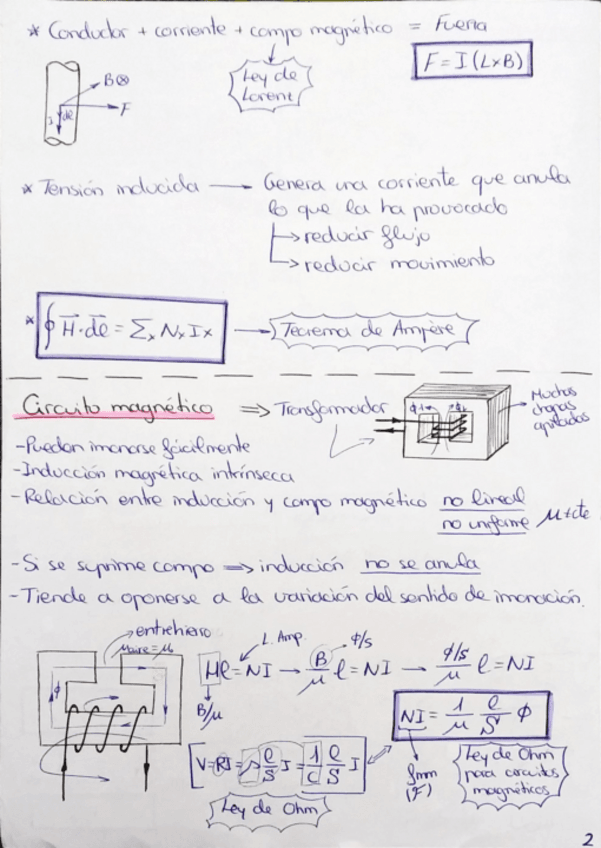 * Conductor + corriente + campo magnético = Fuerza
F = I (L×B)
Ley de
Lorent
B⊗
F
I
dl
* Tensión inducida → Genera una corriente que anula
lo que la ha provocado
→ reducir flujo
→ reducir movimiento
* ∮ H⃗·dl⃗ = Σx Nx Ix → Teorema de Ampère
Circuito magnético ⇒ Transformador
Muchas
chapas
apiladas
- Puedan imanarse fácilmente
- Inducción magnética intrínseca
- Relación entre inducción y campo magnético no lineal
no uniforme μ≠cte
- Si se suprime campo ⇒ inducción no se anula
- Tiende a oponerse a la variación del sentido de imanación.
entrehierro
μaire = μ₀
ϕ
L. Amp.
ϕ/S
Hl = NI → B/μ l = NI → ϕ/S/μ l = NI
B/μ
NI = 1/μ l/S ϕ
V = RI = ρ l/S I = 1/C l/S I
fmm
(F)
Ley de Ohm
para circuitos
magnéticos
Ley de Ohm
2